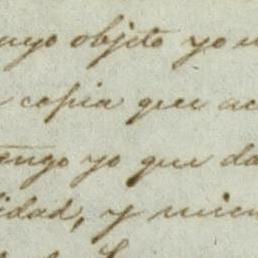 cuyo objeto yo
copia que ac
tengo yo que da
idad, y mien